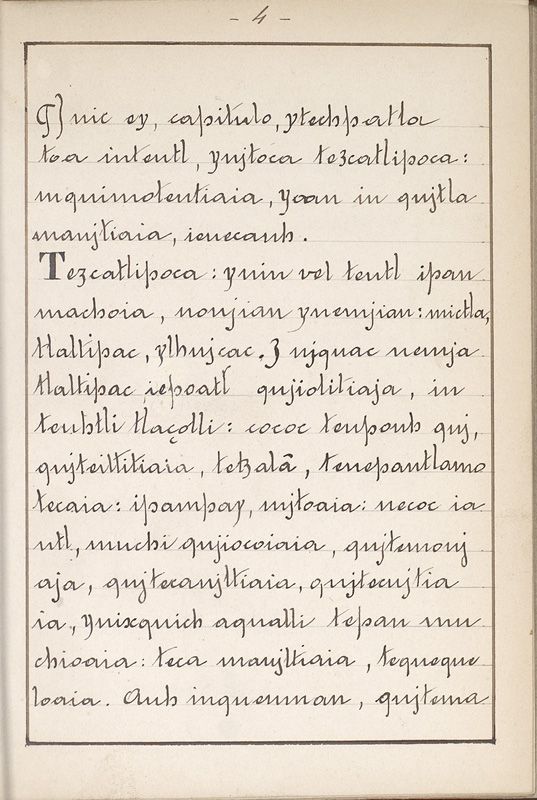 - 4 -
¶ Jnic ey, capitulo, ytechpatla
toa inteutl, ynjtoca tezcatlipoca:
inquimotentiaia, yoan in qujtla
manjtiaia, ieuecauh.
Tezcatlipoca: ynin vel teutl ipan
machoia, noujian ynemjian: mictla,
tlaltipac, ylhujcac. Jnjquac nemja
tlaltipac iepoatl qujiolitiaja, in
teuhtli tlaçolli: cococ teupouh quj,
qujteittitiaia, tetzalā, tenepantlamo
tecaia: ipampay, mjtoaia: necoc ia
utl, muchi qujiocoiaia, qujtemouj
aja, qujtecanjltiaia, qujtecujtia
ia, ynixquich aqualli tepan mu
chioaia: teca maujltiaia, tequeque
loaia. Auh inquenman, qujtema